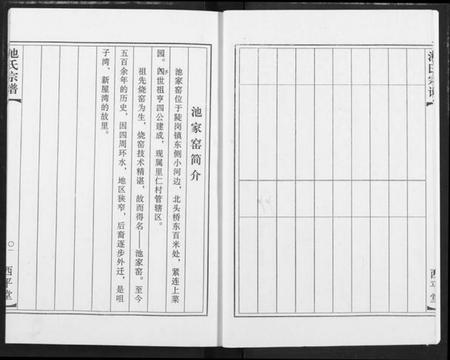 池氏宗谱
西平堂
池家窑简介
池家窑位于陡岗镇东侧小河边，北头桥东百米处，紧连上菜
园。四世祖亨四公建成，现属里仁村管辖区。
祖先烧窑为生，烧窑技术精谌，故而得名——池家窑。至今
五百余年的历史，因四周环水，地区狭窄，后裔逐步外迁，是咀
子湾、新屋湾的故里。
池氏宗谱
西平堂